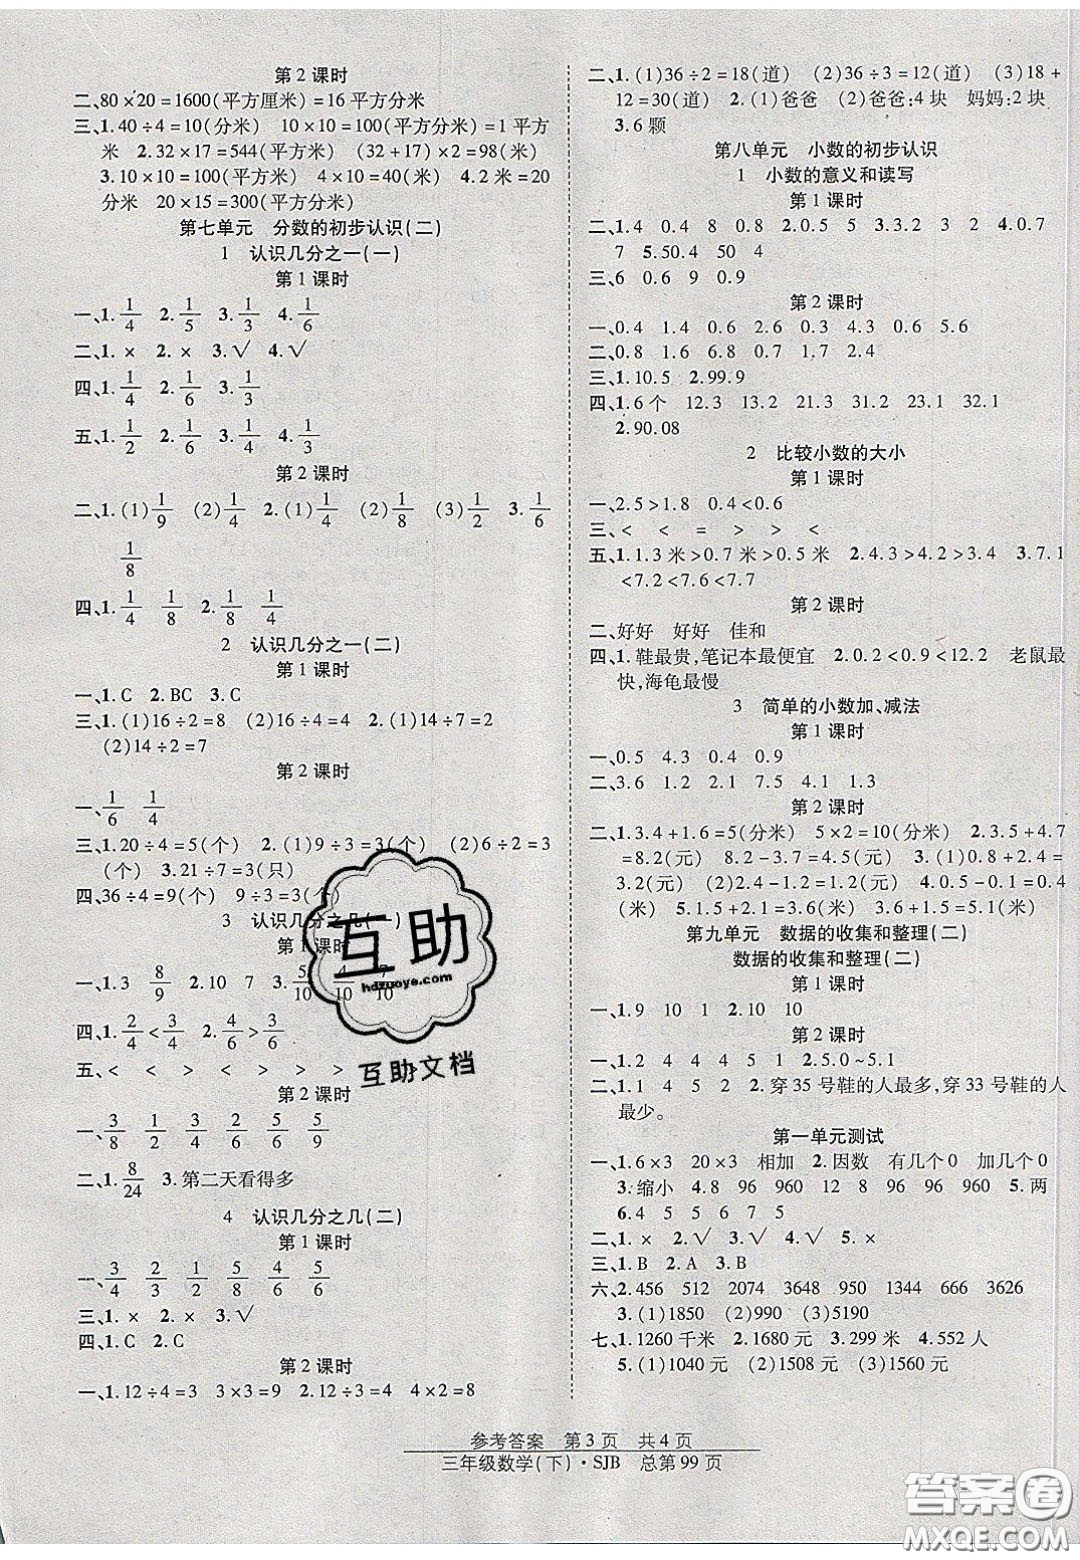 第2课时
二、80×20=1600(平方厘米)=16平方分米
三、1.40÷4=10(分米)　10×10=100(平方分米)=1平方
米　2.32×17=544(平方米)　(32+17)×2=98(米)
3.10×10=100(平方米)　4×10=40(米)　4.2米=20
分米　20×15=300(平方分米)
第七单元　分数的初步认识(二)
1　认识几分之一(一)
第1课时
一、1. 1/4　2. 1/5　3. 1/3　4. 1/6
二、1. ×　2. ×　3. √　4. √
四、1. 1/4　2. 1/6　3. 1/3
五、1. 1/2　2. 1/6　3. 1/4　4. 1/3
第2课时
二、1.(1) 1/9　(2) 1/4　2.(1) 1/4　(2) 1/8　(3) 1/2　3. 1/6
1/8
四、1. 1/4　1/8　2. 1/8　1/4
2　认识几分之一(二)
第1课时
一、1.C　2.BC　3.C
三、1.(1)16÷2=8　(2)16÷4=4　2.(1)14÷7=2
(2)14÷2=7
第2课时
一、1/6　1/4
三、1.20÷4=5(个)　2.(1)9÷3=3(个)　(2)6÷2=3
(个)　3.21÷7=3(只)
四、36÷4=9(个)　9÷3=3(个)
3　认识几分之几(一)
第1课时
一、1.3　8/9　2.10　7　3. 5/10　4/10　7/10
四、1. 2/4<3/4　2. 4/6>3/6
五、<　<　>　<　>　>　>
第2课时
一、3/8　1/2　3/4　2/6　5/6　5/9
二、1. 8/24　3.第二天看得多
4　认识几分之几(二)
第1课时
一、3/4　2/3　1/2　5/8　4/6　5/6
三、1. ×　2. ×　3. √
四、1.C　2.C
第2课时
一、1.12÷4=3　3×3=9　2.12÷3=4　4×2=8
二、1.(1)36÷2=18(道)　(2)36÷3=12(道)　(3)18+
12=30(道)　2.(1)爸爸　(2)爸爸:4块　妈妈:2块
3.6颗
第八单元　小数的初步认识
1　小数的意义和读写
第1课时
二、1.4　0.4　8　0.8　2.0.5　5　3.3.2　3　2　4.0.7
7　5.50.4　50　4
三、6　0.9　0.4　0.1
第2课时
一、0.4　1.4　0.6　2.6　0.4　4.3　0.6　5.6
二、0.8　1.6　0.8　0.7　1.7　2.4
三、1.10.5　2.99.9
四、1.6个　12.3　13.2　21.3　23.1　31.2　32.1
2.90.08
2　比较小数的大小
第1课时
一、2.5>1.8　0.4<0.6
三、<　<　=　>　>　<
五、1.1.3米>0.7米>0.5米　2.4.3>4.2>3.4　3.7.1
<7.2<7.6<7.7
第2课时
二、好好　好好　佳和
四、1.鞋最贵,笔记本最便宜　2.0.2<0.9<12.2　老鼠最
快,海龟最慢
3　简单的小数加、减法
第1课时
一、0.5　4.3　0.4　0.9
二、3.6　1.2　0.8　7.5　4.1　1.3
第2课时
二、1.3.4+1.6=5(分米)　5×2=10(分米)　2.3.5+4.7
=8.2(元)　8.2-3.7=4.5(元)　3.(1)0.8+2.4=
3.2(元)　(2)2.4-1.2=1.2(元)　4.0.5-0.1=0.4
(米)　5.1.5+2.1=3.6(米)　3.6+1.5=5.1(米)
第九单元　数据的收集和整理(二)
数据的收集和整理(二)
第1课时
一、1.9　10　1　2.10　10
第2课时
一、1.2　4　4　4　5　1　2.5.0~5.1
二、1.1　4　5　2　2.穿35号鞋的人最多,穿33号鞋的人
最少。
第一单元测试
一、1.6×3　20×3　相加　2.因数　有几个0　加几个0
3.缩小　4.8　96　960　12　8　96　96　960　5.两
6.4　5　5　6　7　5
二、1. ×　2. √　3. √　4. √　5. ×
三、1.B　2.A　3.B
六、2.456　512　2074　3648　950　1344　666　3626
3.(1)1850　(2)990　(3)5190
七、1.1260千米　2.1680元　3.299米　4.552人
5.(1)1040元　(2)1508元　(3)1560元
参考答案　第3页　共4页
三年级数学(下)·SJB　总第99页
互助
hdzuoye.com
互助文档
答案圈
MXQE.COM